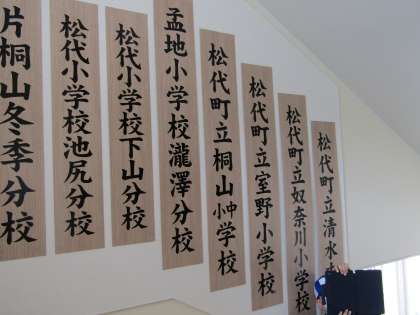 松代町立清水
松代町立奴奈川小学校
松代町立室野小学校
松代町立桐山小中学校
孟地小学校瀧澤分校
松代小学校下山分校
松代小学校池尻分校
片桐山冬季分校